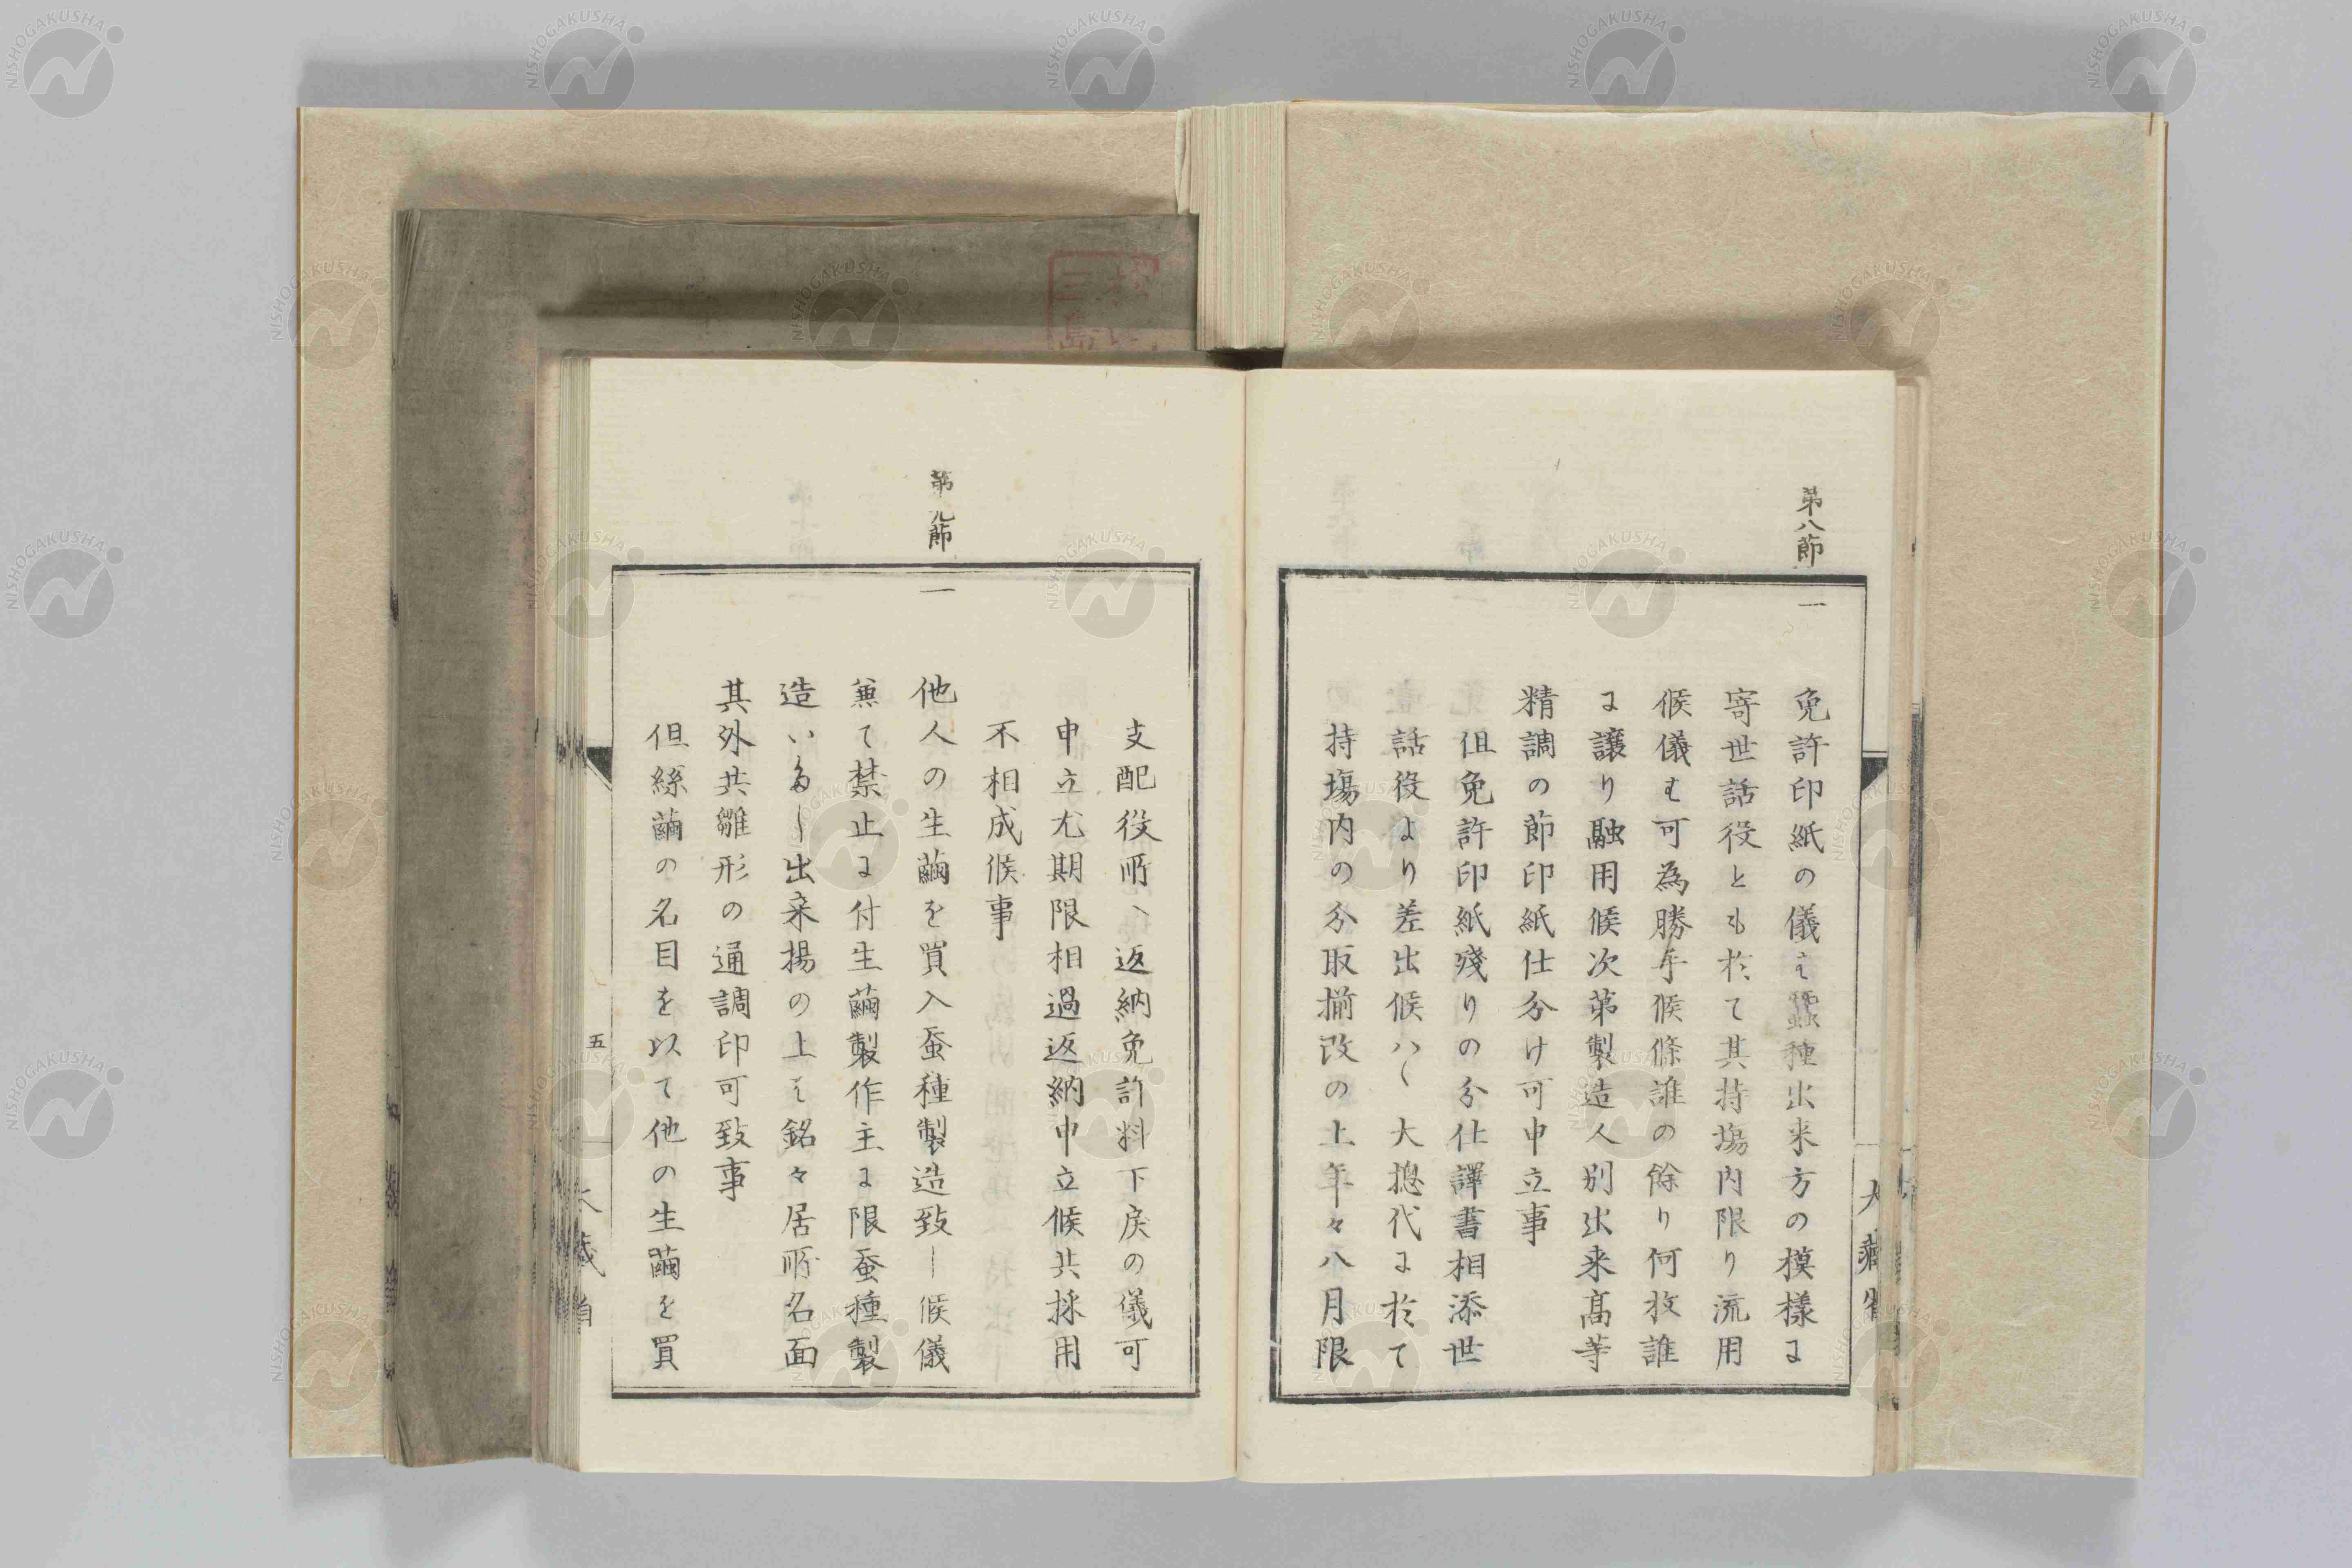 第八節
一
免許印紙の儀は蠶種出来方の模様に
寄世話役とも於て其持場内限り流用
候儀む可為勝手候條誰の餘り何枚誰
に譲り融用候次第製造人別出来髙等
精調の節印紙仕分け可申立事
但免許印紙殘りの分仕譯書相添世
話役より差出候ハヽ大摠代に於て
持塲内の分取揃改の上年々八月限
大藏省
支配役所へ返納免許料下戻の儀可
申立尤期限相過返納申立候共採用
不相成候事
第九節
一
他人の生繭を買入蚕種製造致し候儀
兼て禁止に付生繭製作主に限蚕種製
造いたし出来揚の上は銘々居所名面
其外共雛形の通調印可致事
但絲繭の名目を以て他の生繭を買
五
大藏省